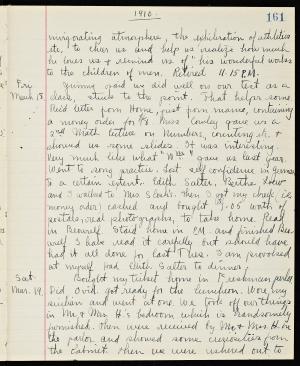 1910.
161
invigorating atmosphere, the exhilaration of athletics
etc. to cheer us and help us realize how much
he loves us & remind us of "his wonderful works
to the children of men. Retired 11.15 P.M.
Fri.
March 18.
Gummy said we did well on our test as a
class, stuck to the point. That helps some
Rec'd letter from Home, just from mama, containing
a money order for Miss Cowley gave us a
2nd Math lecture on Numbers, counting etc. &
showed us some slides. It was interesting.
Very much like what gave us last year.
Went to song practice. Lost self confidence in
to a certain extent. Edith Satter, Bertha
and I walked to Mrs then I got my check &
money order cashed and bought .05 worth of
postals, real photographs, to take home. Read
in Beowulf. Staid home in P.M. and finished Beo-
wulf. I have read it carefully but should have
had it all done for last Tues. I am provoked
at myself. Had Edith Satter to dinner.
Sat.
Mar. 19.
Bought my ticket home in
Did Ovid. Got ready for the luncheon. Wore my
and went at one. We took off our things
in Mr. & Mrs. H's bedroom which is handsomely
furnished. Then were received by Mr. & Mrs. H. in
the parlor and showed some curiosities from
the Cabinet. Then we were ushered out to